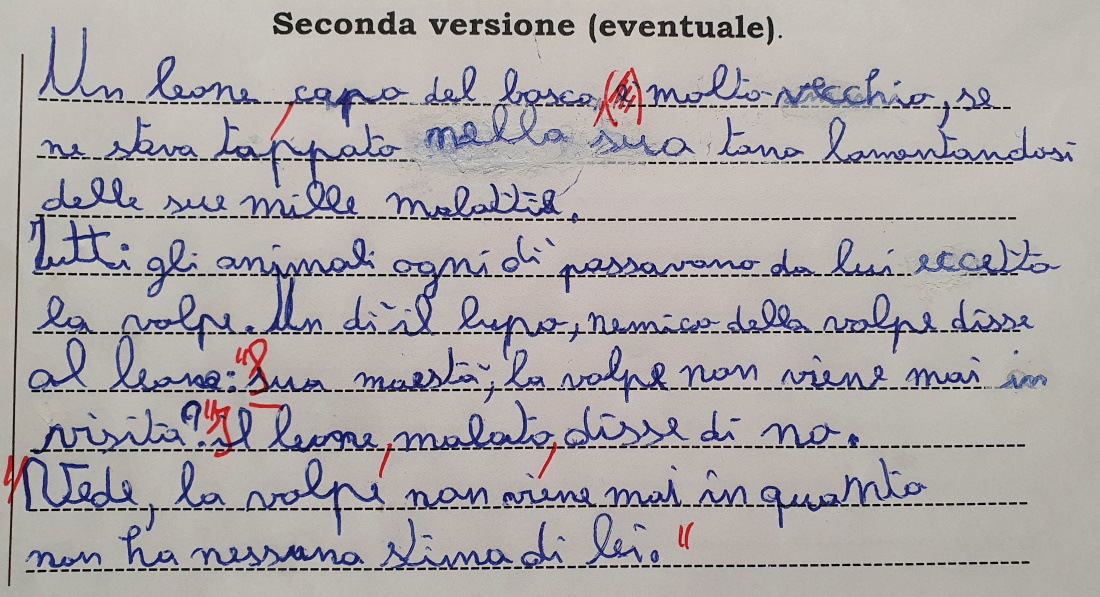 Seconda versione (eventuale).
Un leone, capo del bosco, molto vecchio, se
ne stava tappato nella sua tana lamentandosi
delle sue mille malattie.
Tutti gli animali ogni dì passavano da lui eccetto
la volpe. Un dì il lupo, nemico della volpe disse
al leone: "Sua maestà, la volpe non viene mai in
visita?" Il leone, malato, disse di no.
"Vede, la volpe non viene mai in quanto
non ha nessuna stima di lei."